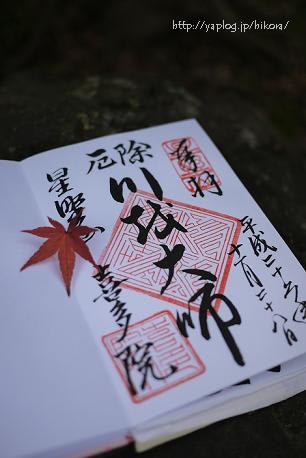 http://yaplog.jp/hikora/
奉拝
平成二十六年
十一月二十八日
厄除
川越大師
星野山
喜多院